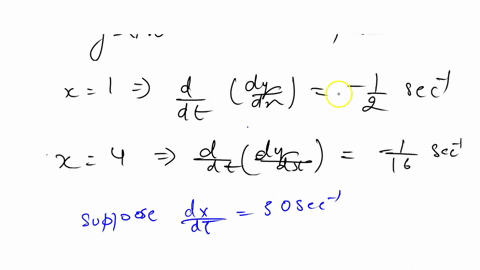 x = 1 ⇒ d/dt (dy/dx) = -1/2 sec⁻¹
x = 4 ⇒ d/dt (dy/dx) = -1/16 sec⁻¹
suppose dx/dt = 30 sec⁻¹